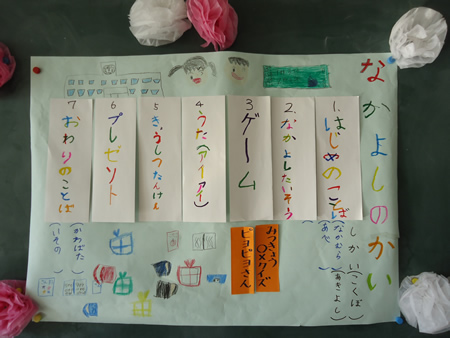 なかよしのかい
しかい(こくば)
(あきよし)
(なかむら)
(あべ)
1.はじめのことば
2.なかよしたいそう
3 ゲーム
4.うた(アイアイ)
5 きょうしつたんけん
6 プレゼント
7 おわりのことば
(かわばた)
(いその)
〇×クイズ
ピヨピヨさん